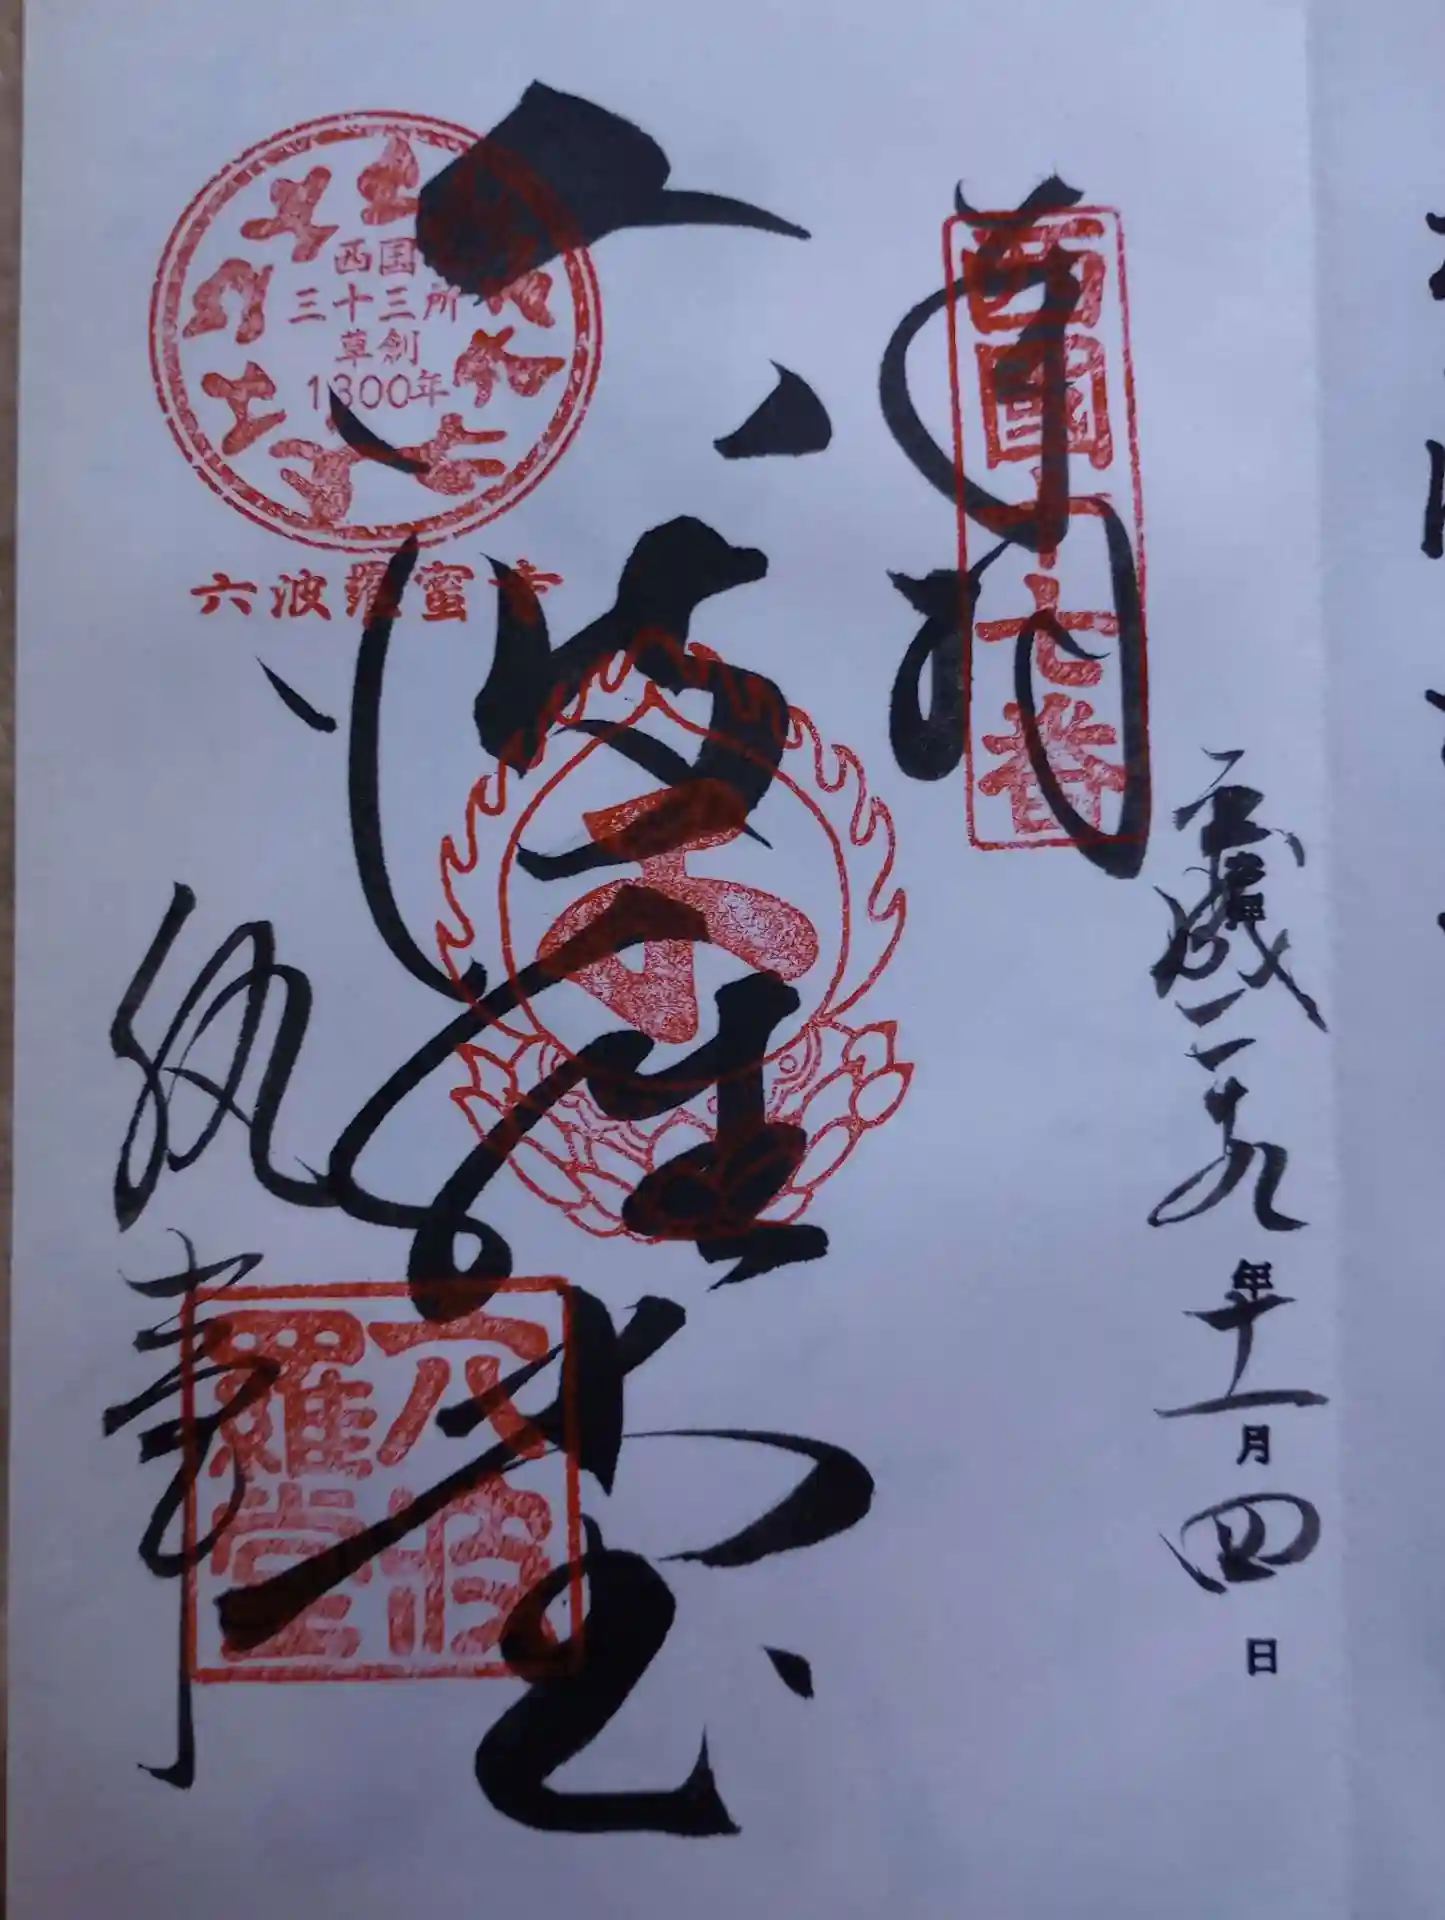 奉拝
西國十七番
平成二十九年十一月四日
六波羅堂
西国
三十三所
草創
1300年
六波羅蜜寺
六波羅堂
執事